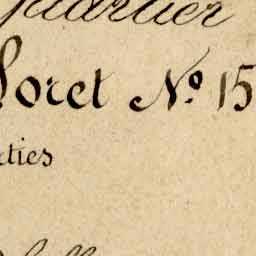 Quartier
Loret N.º 15
rties